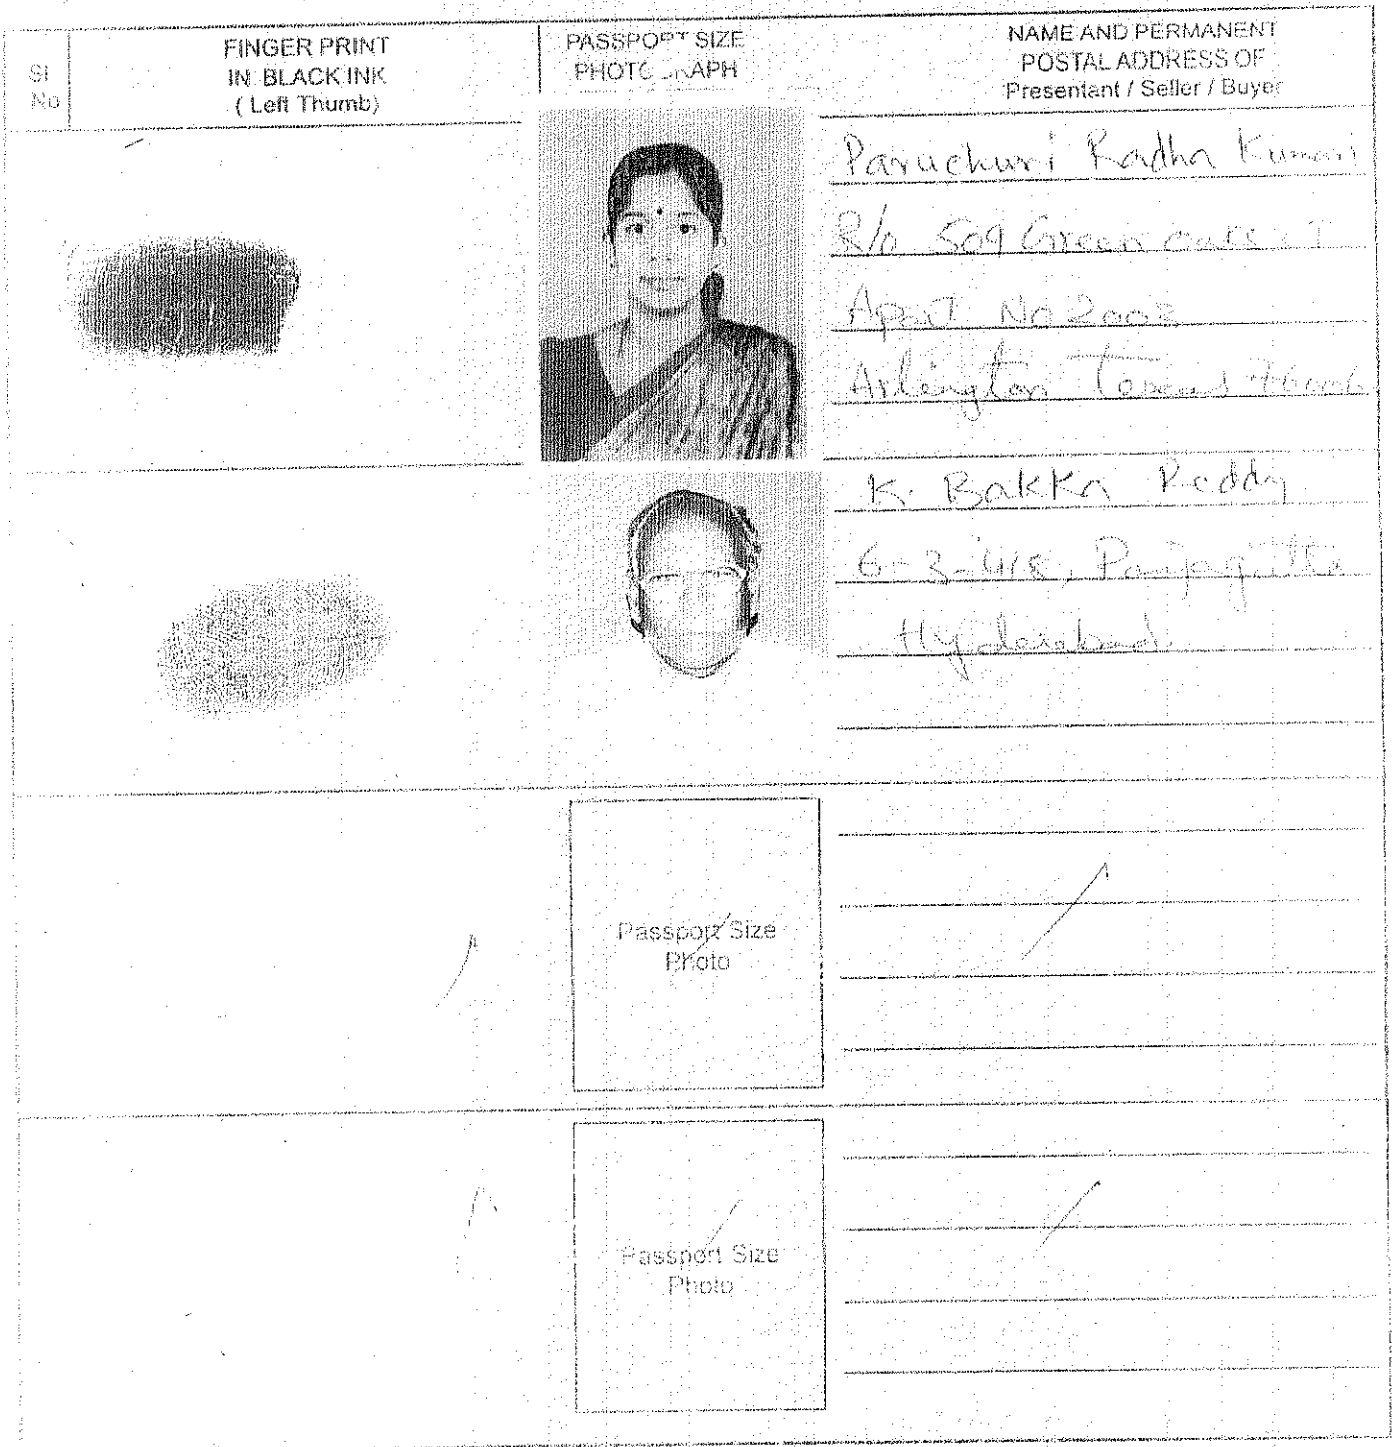 Sl No
FINGER PRINT
IN BLACK INK
( Left Thumb)
PASSPORT SIZE
PHOTOGRAPH
NAME AND PERMANENT
POSTAL ADDRESS OF
Presentant / Seller / Buyer
Paruchuri Radha Kumari
R/o 509 Green
Apart No 2003
Arlington
K. Bakka Reddy
6-3-418, Panjagutta
Hyderabad.
Passport Size
Photo
Passport Size
Photo